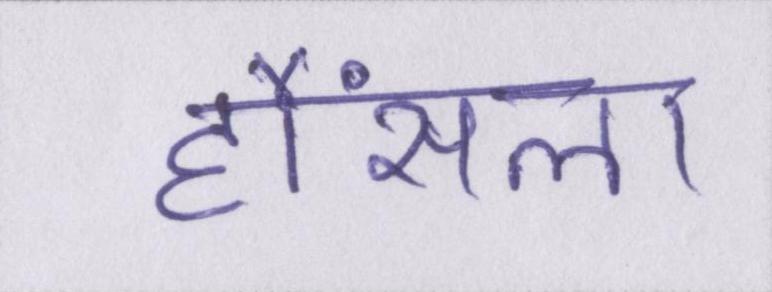 हौंसला